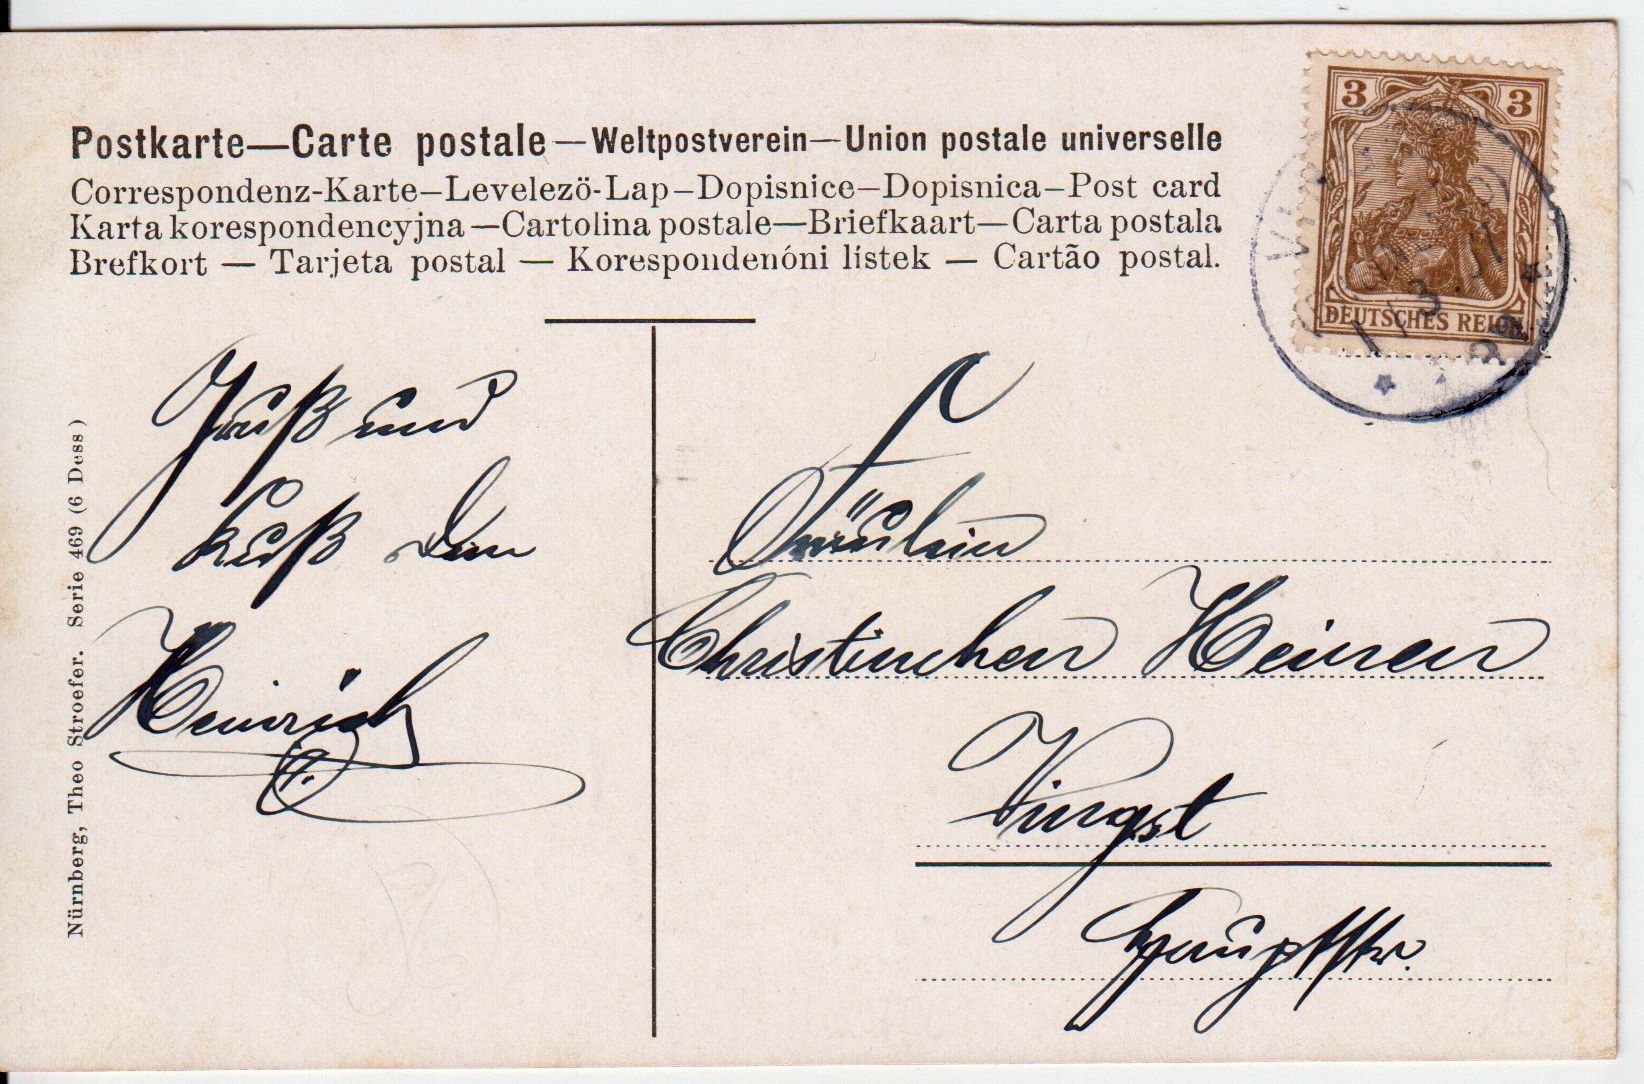 Postkarte—Carte postale—Weltpostverein—Union postale universelle
Correspondenz-Karte—Levelezö-Lap—Dopisnice—Dopisnica—Post card
Karta korespondencyjna—Cartolina postale—Briefkaart—Carta postala
Brefkort — Tarjeta postal — Korespondenóni lístek — Cartão postal.
3 3
DEUTSCHES REICH
Gruß und
Kuß Dein
Heinrich
Fräulein
Christinchen Heinen
Vingst
Hauptstr.
Nürnberg, Theo Stroefer. Serie 469 (6 Dess)